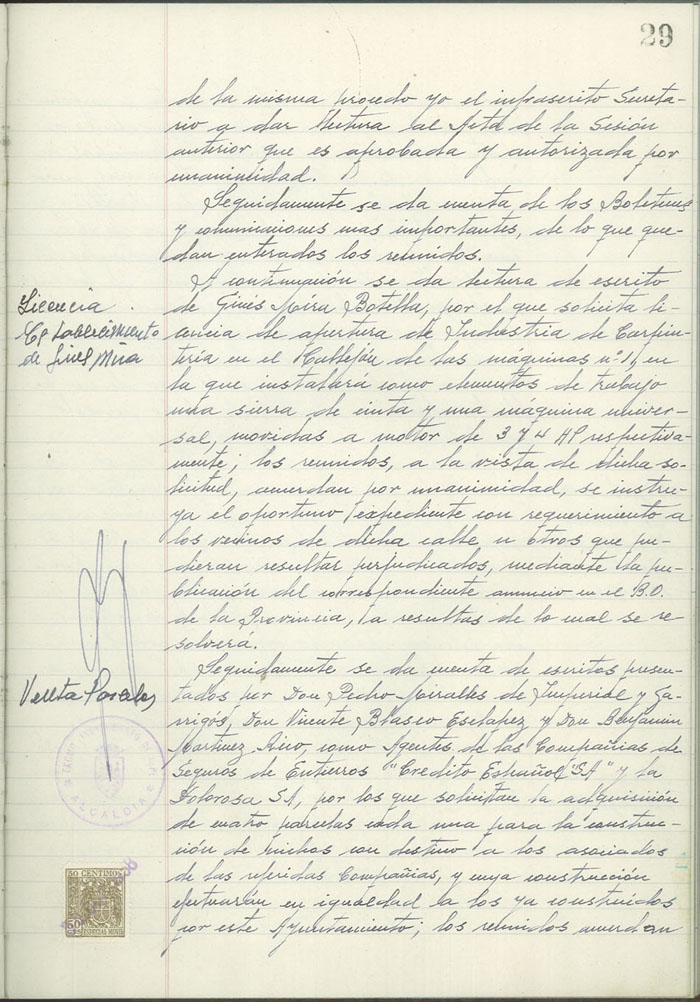 29
de la misma procedo yo el infrascrito Secreta-
rio a dar lectura al Acta de la Sesión
anterior que es aprobada y autorizada por
unanimidad.
Seguidamente se da cuenta de los Boletines
y comunicaciones mas importantes, de lo que que-
dan enterados los reunidos.
Licencia
Establecimiento
de Ginés Mira
A continuación se da lectura de escrito
de Ginés Mira Botella, por el que solicita li-
cencia de apertura de Industria de Carpin-
tería en el Callejón de las maquinas nº 1, en
la que instalará como elementos de trabajo
una sierra de cinta y una máquina univer-
sal, movidas a motor de 3 y 4 HP respectiva-
mente; los reunidos, a la vista de dicha so-
licitud, acuerdan por unanimidad, se instru-
ya el oportuno expediente con requerimiento a
los vecinos de dicha calle u otros que pu-
dieran resultar perjudicados, mediante la pu-
blicación del correspondiente anuncio en el B.O.
de la Provincia, a resultas de lo cual se re-
solverá.
Venta Parcelas
Seguidamente se da cuenta de escritos presen-
tados por Don Pedro Miralles de Imperial y Ga-
rrigós, Don Vicente Blasco Esclapez y Don Benjamin
Martinez Rico, como Agentes de las Compañias de
Seguros de Entierros "Credito Español "SA" y la
Dolorosa SA, por los que solicitan la adquisición
de cuatro parcelas cada una para la construc-
ción de nichos con destino a los asociados
de las referidas Compañias, y cuya construcción
efectuarán en igualdad a los ya construidos
por este Ayuntamiento; los reunidos acuerdan
ALCALDIA
50 CENTIMOS
50
ESPECIAL MOVIL